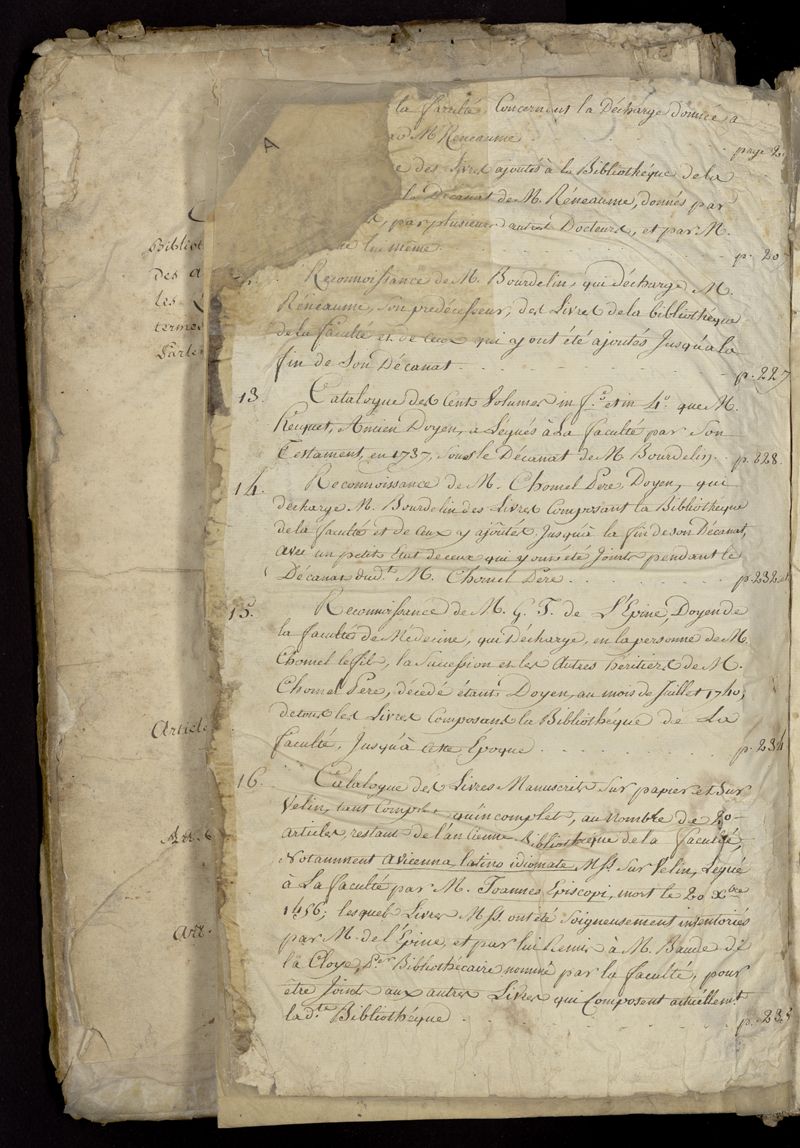 A
la faculté, Concernant la Décharge donnée a
M. Reneaume
page 2
des Livres ajoutés à la Bibliothéque de la
le Décanat de M. Réneaume, donnés par
par plusieurs autres Docteurs, et par M.
lui même.
p. 207
Reconnoissance de M. Bourdelin, qui décharge M.
Réneaume, son prédécesseur, des Livres de la bibliothéque
de la faculté et de ceux qui y ont été ajoutés Jusqu'à la
fin de Son Décanat
p. 227
13. Catalogue des Cent Volumes in f.° et in 4.° que M.
Recquet, Ancien Doyen, a Legués à La faculté par Son
Testament, en 1737, sous le Décanat de M. Bourdelin. p. 228.
14. Reconnoissance de M. Chomel Pere, Doyen, qui
décharge M. Bourdelin des Livres Composant la Bibliothéque
de la faculté et de Ceux y ajoûtés Jusqu'à la fin de son Décanat,
avec un petit Etat de ceux qui y ont été Joints pendant le
Décanat dud.t M. Chomel Pere
p. 232 et
15. Reconnoissance de M. G. J. de L'Epine, Doyen de
la faculté de Médecine, qui Décharge, en la personne de M.
Chomel le fils, la Succession et les Autres héritiers de M.
Chomel Pere, décédé étant Doyen, au mois de Juillet 1740;
de tous les Livres Composant la Bibliothéque de La
faculté, Jusqu'à cette Epoque
p. 234
16. Catalogue des Livres Manuscrits Sur papier et Sur
Velin, tant Complet qu'incomplet, au nombre de 20
articles restant de l'ancienne Bibliothéque de la faculté,
Notamment Avicenna latino idiomate, MSt. Sur Velin, Legué
à La faculté par M. Joannes Episcopi, mort le 20 Xbre
1456; lesquels Livres MSS. ont été Soigneusement inventoriés
par M. de l'Epine, et par lui Remis à M. Baude de
la Cloye, P.er Bibliothécaire nommé par la faculté, pour
etre Joint aux autres Livres qui Composent actuéllement
lad.te Bibliothéque.
p. 235
Bibliot
des a
les
terme
Article
Art. 
Art.